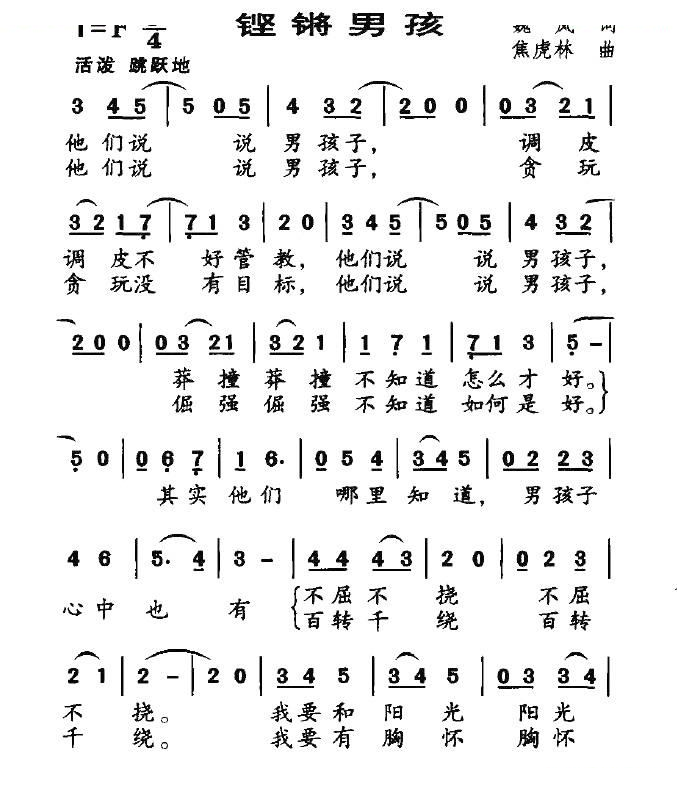 铿锵男孩
焦虎林 曲
活泼 跳跃地
3 45 | 5 05 | 4 32 | 200 | 03 21 |
他们说 说男孩子, 调皮
他们说 说男孩子, 贪玩
32 17 | 71 3 | 2 0 | 34 5 | 505 | 4 32 |
调皮不好管教, 他们说 说男孩子,
贪玩没有目标, 他们说 说男孩子,
200 | 03 21 | 32 1 | 1 7 1 | 71 3 | 5 - |
莽撞莽撞不知道怎么才好。
倔强倔强不知道如何是好。
5 0 | 0 6 7 | 1 6· | 05 4 | 34 5 | 02 23 |
其实他们 哪里知道, 男孩子
4 6 | 5· 4 | 3 - | 44 43 | 2 0 | 02 3 |
心中也有
不屈不挠 不屈
百转千绕 百转
2 1 | 2 - | 2 0 | 34 5 | 34 5 | 03 34 |
不挠。 我要和阳光 阳光
千绕。 我要有胸怀 胸怀